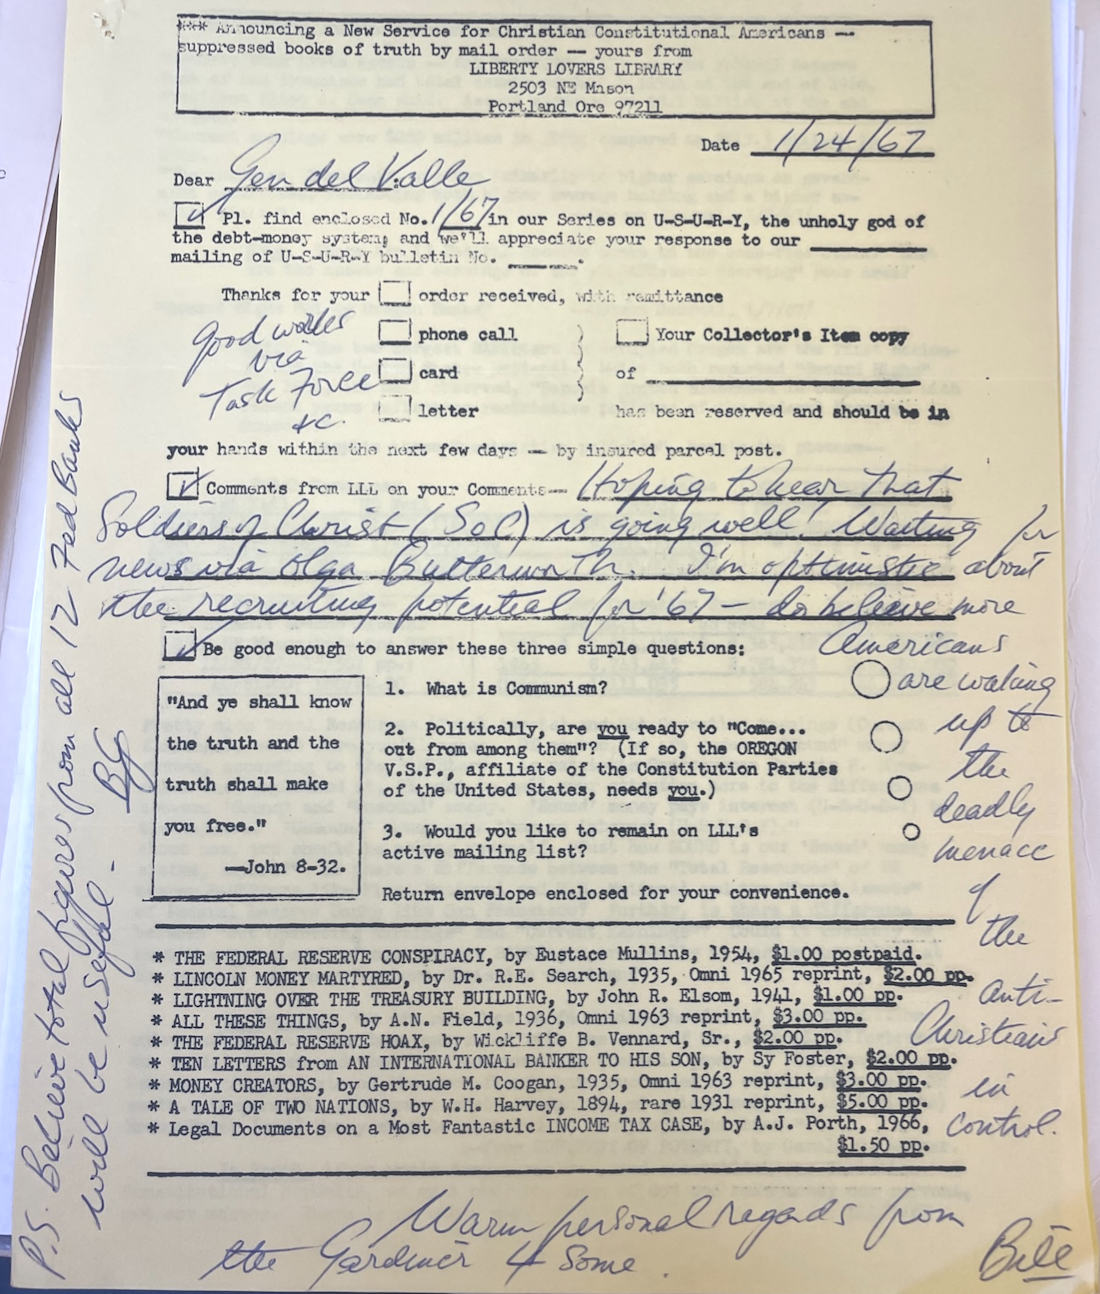 *** Announcing a New Service for Christian Constitutional Americans —
suppressed books of truth by mail order — yours from
LIBERTY LOVERS LIBRARY
2503 NE Mason
Portland Ore 97211
Date 1/24/67
Dear Gen del Valle
Pl. find enclosed No. 1/67 in our Series on U-S-U-R-Y, the unholy god of
the debt-money system; and we'll appreciate your response to our
mailing of U-S-U-R-Y bulletin No.
Thanks for your order received, with remittance
good works
via
Task Force
&c.
phone call
card
letter
Your Collector's Item copy
of
has been reserved and should be in
your hands within the next few days — by insured parcel post.
Comments from LLL on your Comments— Hoping to hear that
Soldiers of Christ (SoC) is going well! Waiting for
news via Olga Butterworth. I'm optimistic about
the recruiting potential for '67 – do believe more
Americans
are waking
up to
the
deadly
menace
of
the
anti-
Christians
in
control.
Be good enough to answer these three simple questions:
"And ye shall know
the truth and the
truth shall make
you free."
—John 8-32.
1. What is Communism?
2. Politically, are you ready to "Come...
out from among them"? (If so, the OREGON
V.S.P., affiliate of the Constitution Parties
of the United States, needs you.)
3. Would you like to remain on LLL's
active mailing list?
Return envelope enclosed for your convenience.
* THE FEDERAL RESERVE CONSPIRACY, by Eustace Mullins, 1954, $1.00 postpaid.
* LINCOLN MONEY MARTYRED, by Dr. R.E. Search, 1935, Omni 1965 reprint, $2.00 pp.
* LIGHTNING OVER THE TREASURY BUILDING, by John R. Elsom, 1941, $1.00 pp.
* ALL THESE THINGS, by A.N. Field, 1936, Omni 1963 reprint, $3.00 pp.
* THE FEDERAL RESERVE HOAX, by Wickliffe B. Vennard, Sr., $2.00 pp.
* TEN LETTERS from AN INTERNATIONAL BANKER TO HIS SON, by Sy Foster, $2.00 pp.
* MONEY CREATORS, by Gertrude M. Coogan, 1935, Omni 1963 reprint, $3.00 pp.
* A TALE OF TWO NATIONS, by W.H. Harvey, 1894, rare 1931 reprint, $5.00 pp.
* Legal Documents on a Most Fantastic INCOME TAX CASE, by A.J. Porth, 1966,
$1.50 pp.
Warm personal regards from
the Gardiner 4 Some.
Bill
P.S. Believe total figures from all 12 Fed Banks
will be useful – BG